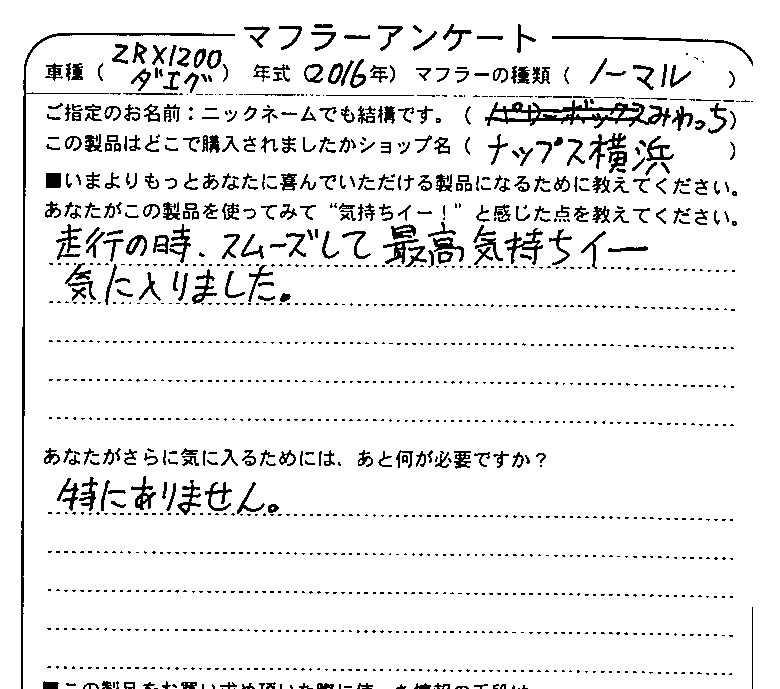 マフラーアンケート
車種(ZRX1200 ダエグ) 年式(2016年) マフラーの種類(ノーマル)
ご指定のお名前:ニックネームでも結構です。(みわっち)
この製品はどこで購入されましたかショップ名(ナップス横浜)
■いまよりもっとあなたに喜んでいただける製品になるために教えてください。
あなたがこの製品を使ってみて“気持ちイー!”と感じた点を教えてください。
走行の時、スムーズして最高気持ちイー
気に入りました。
あなたがさらに気に入るためには、あと何が必要ですか?
特にありません。